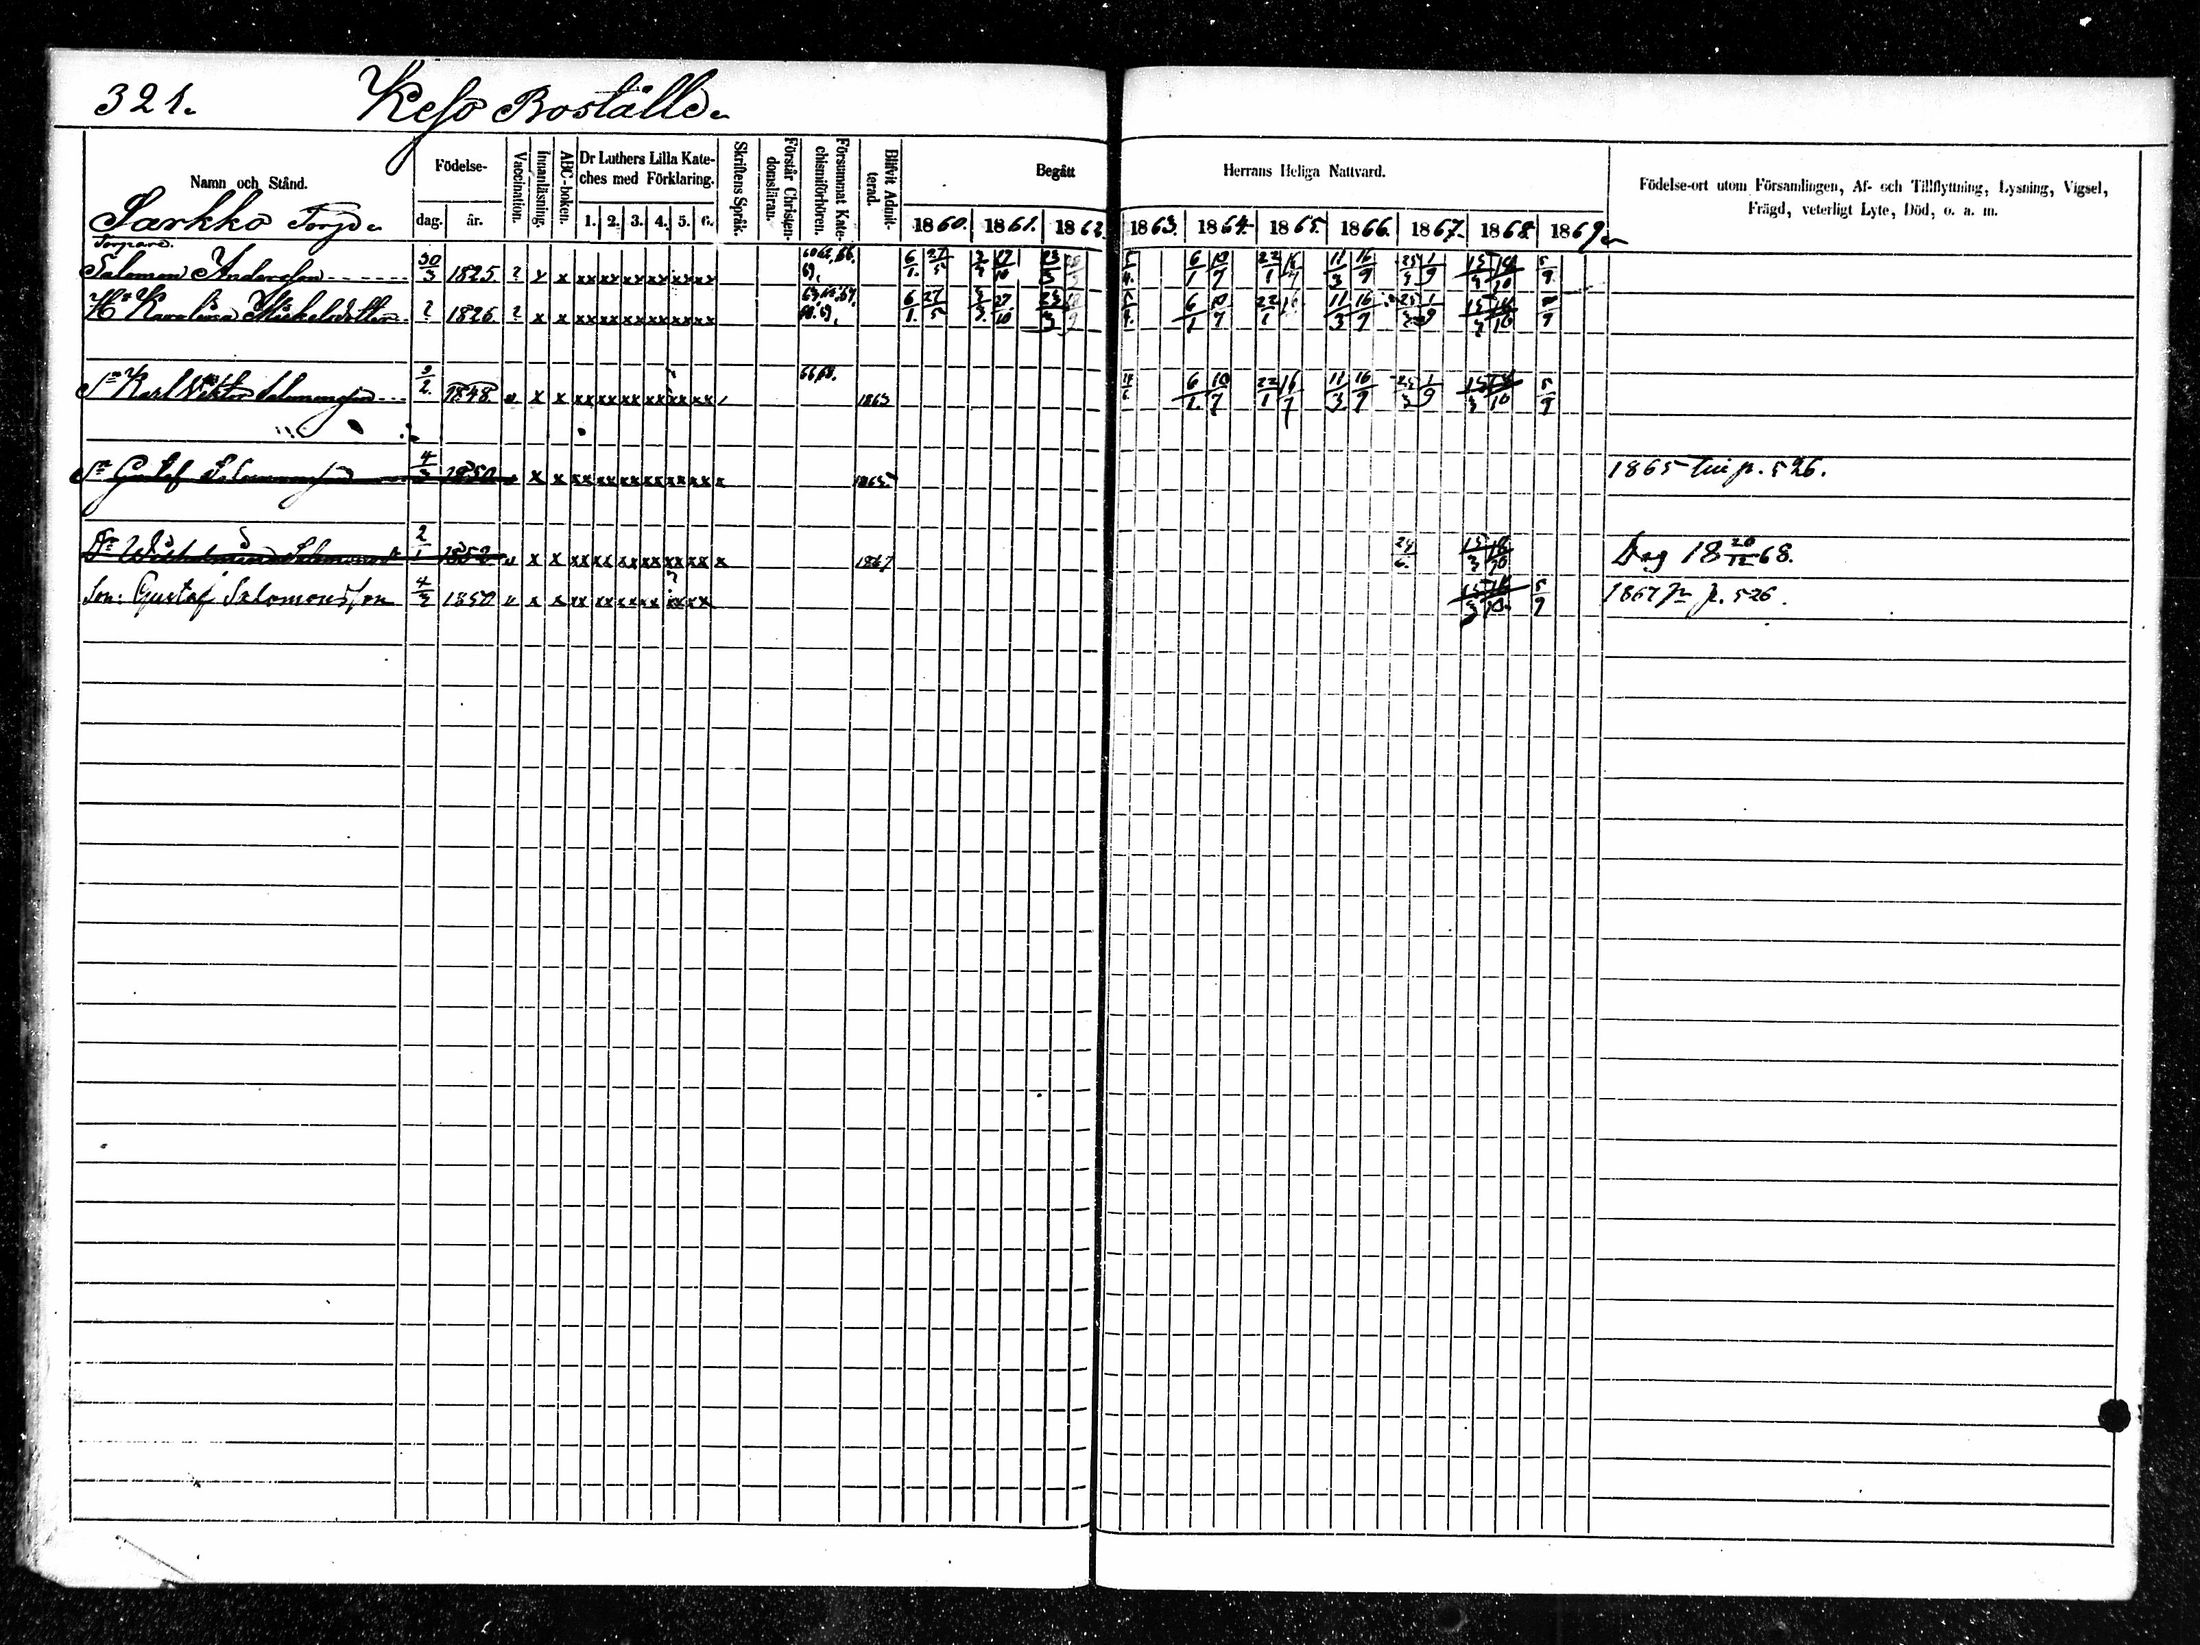 321. Keso Boställe.
Namn och Stånd.
Födelse-
dag. år.
Vaccination.
Innanläsning.
ABC-boken.
Dr Luthers Lilla Kate-
ches med Förklaring.
1. 2. 3. 4. 5. 6.
Skriftens Språk.
Förstår Christen-
domsläran.
Försummat Kate-
chismiförhören.
Blifvit Admit-
terad.
Begått Herrans Heliga Nattvard.
1860. 1861. 1862. 1863. 1864. 1865. 1866. 1867. 1868. 1869.
Födelse-ort utom Församlingen, Af- och Tillflyttning, Lysning, Vigsel,
Frägd, veterligt Lyte, Död, o. a. m.
Sarkko Torp.
Torpare.
Salomon Andersson 30/3 1825. ? x x xx xx xx xx xx xx 6/1. 27/5 11/3 16/9 1/9 5/9
Hu Karolina Mickelsdotter ? 1826 ? x x xx xx xx xx xx xx 6/1. 27/5 6/1 10/7 11/3 16/9 1/9
Sn Karl Viktor Salomonsson 1848 x x xx xx xx xx xx xx 66,68. 1863 6/1. 10/7 22/1 16/7 11/3 16/9 1/9 5/9
Sn Gustaf Salomonsson 4/3 1850 x x xx xx xx xx xx xx x 1865 1865 p. 526.
Dr Wilhelmina Salomonsd 2/1 1852 x x xx xx xx xx xx xx x 1867 24/6. Dog 18 20/12 68.
Son: Gustaf Salomonsson 4/3 1850 x x xx xx xx xx xx xx 5/9 1867 fr p. 526.